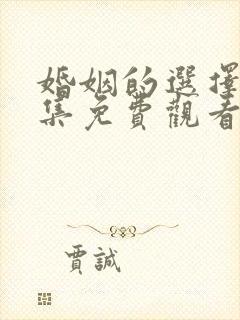 婚姻的選擇
集免費觀看
賈誠